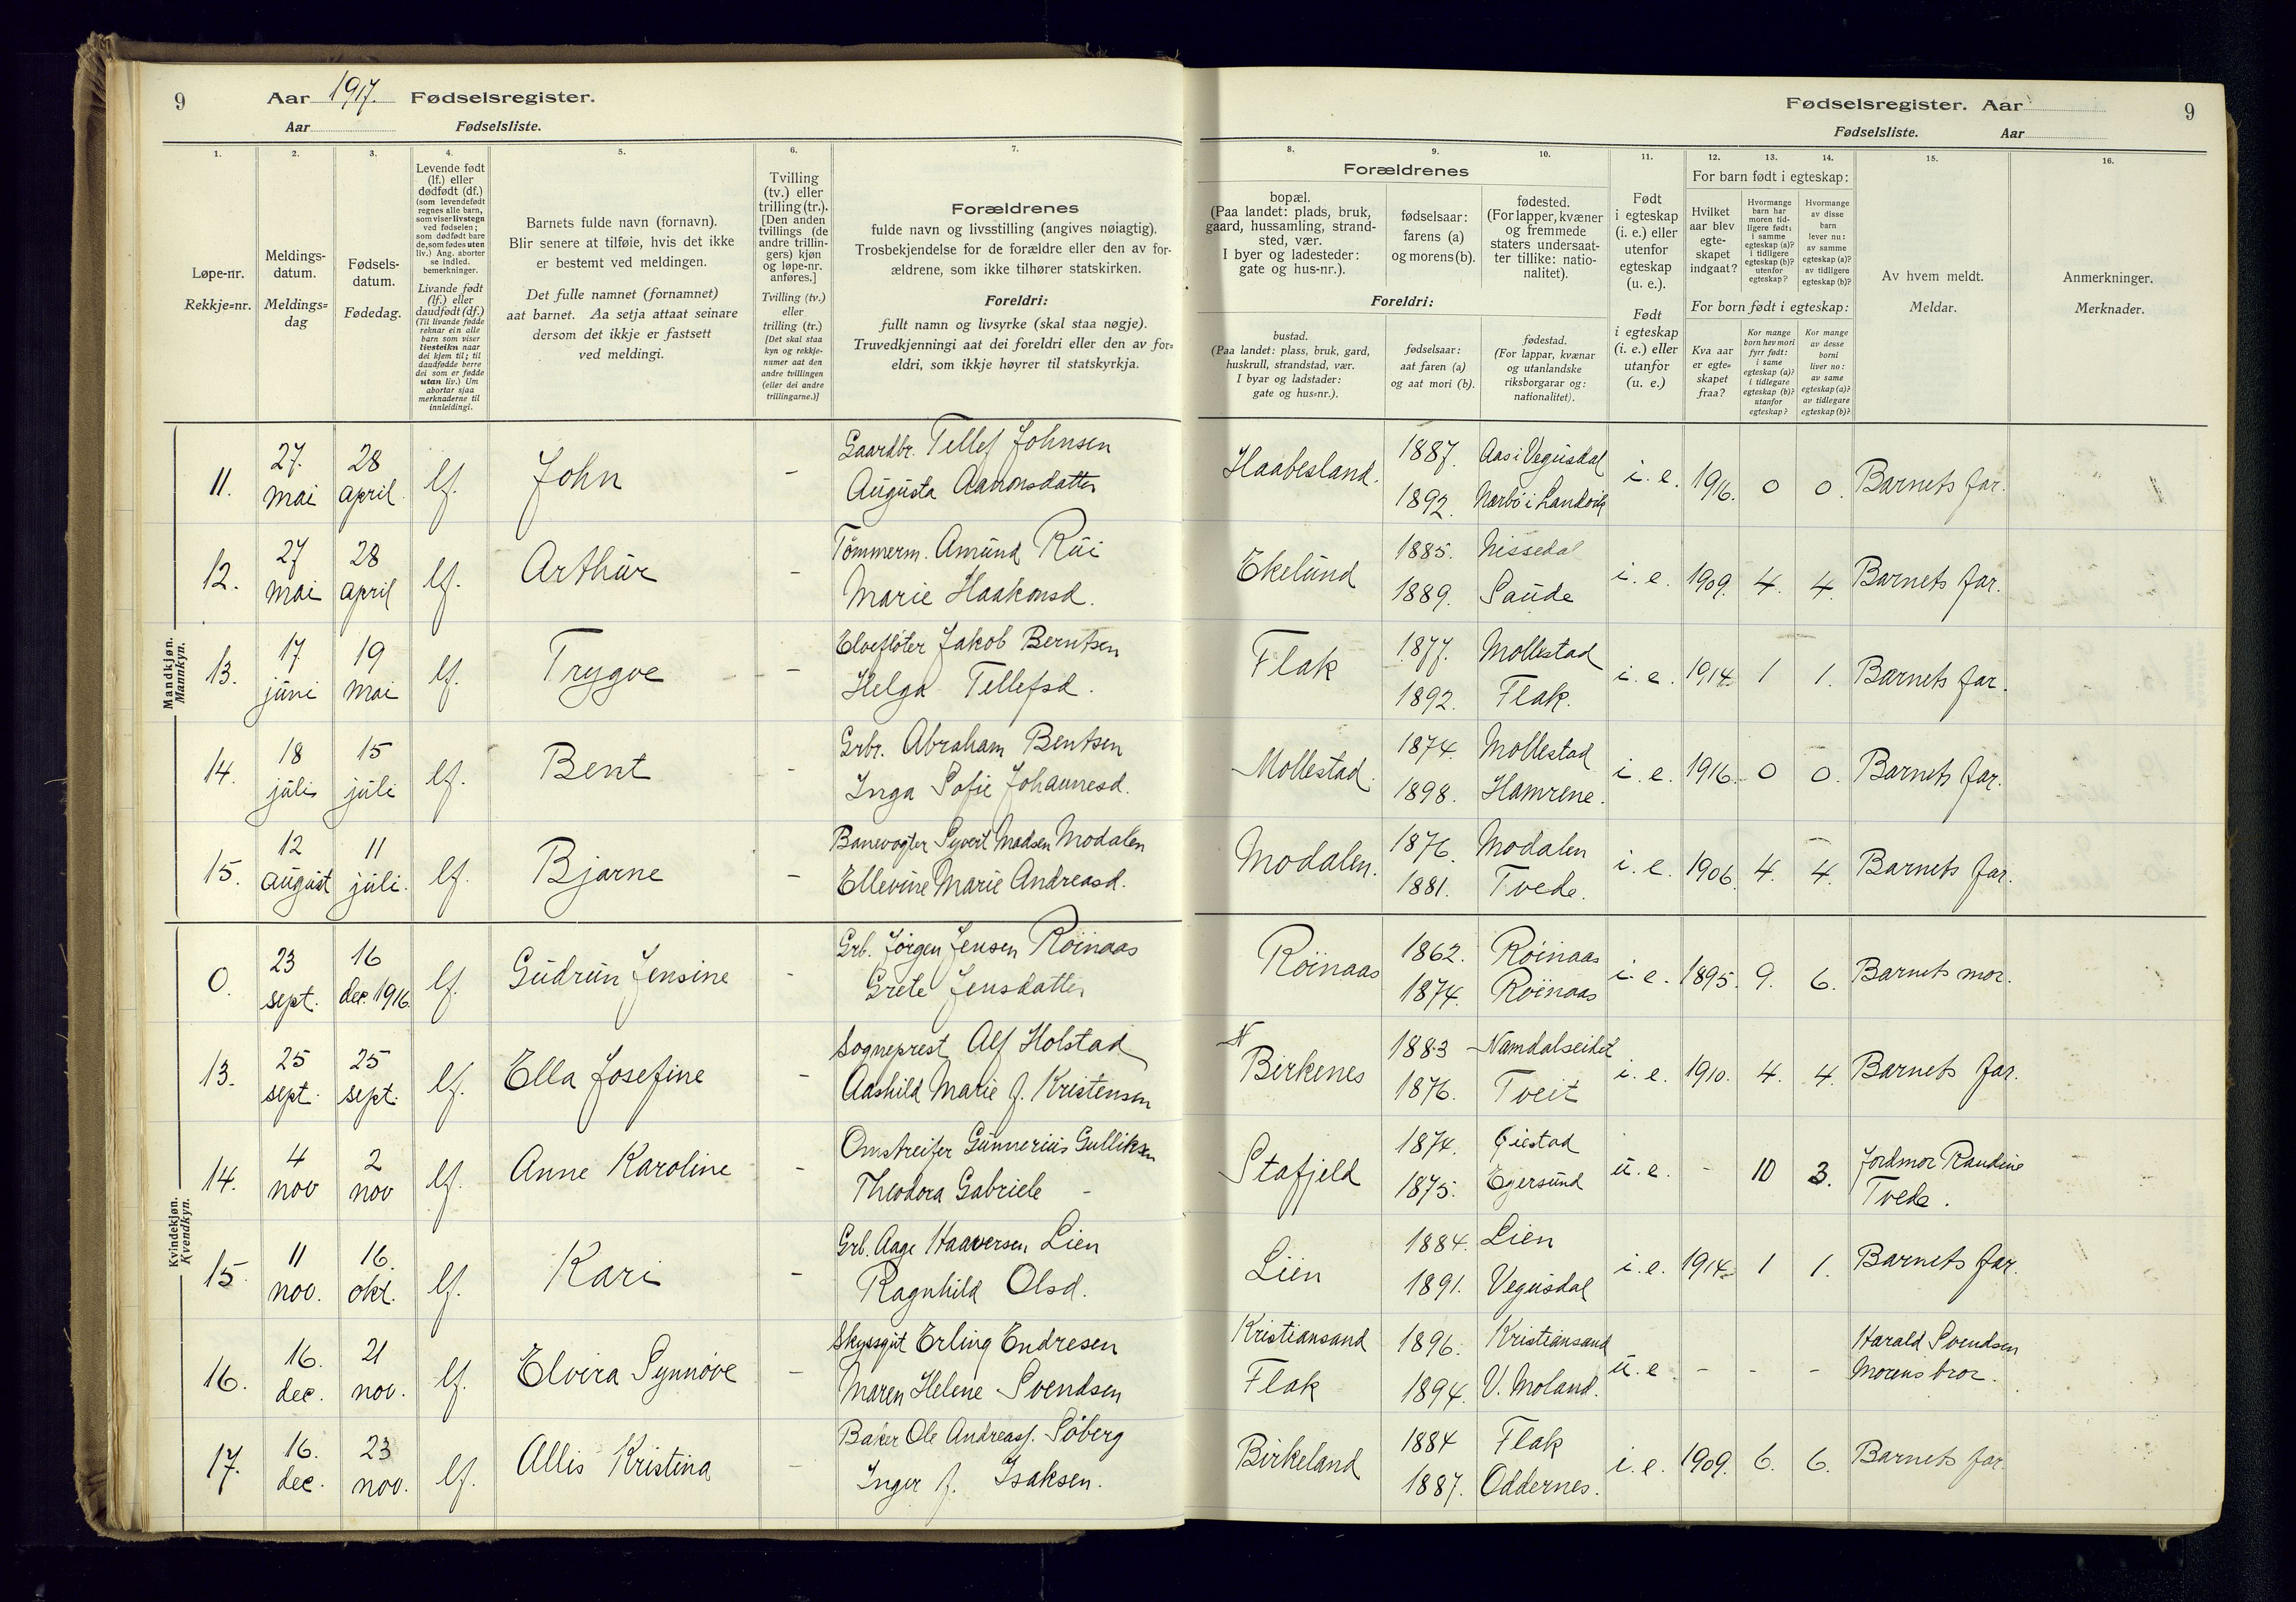 9
Aar 1917. Fødselsregister.
Aar Fødselsliste.
Fødselsregister. Aar
9
Fødselsliste. Aar
1.
Løpe-nr.
Rekkje=nr.
2.
Meldings-
datum.
Meldings=
dag
3.
Fødsels-
datum.
Fødedag.
4.
Levende født
(lf.) eller
dødfødt (df.)
(som levendefødt
regnes alle barn,
som viser livstegn
ved fødselen;
som dødfødt bare
de, som fødes uten
liv.) Ang. aborter
se indled.
bemerkninger.
Livande født
(lf.) eller
daudfødt (df.)
(Til livande fødde
reknar ein alle
barn som viser
livsteikn naar
dei kjem til; til
daudfødde berre
dei som er fødde
utan liv.) Um
abortar sjaa
merknaderne til
innleidingi.
5.
Barnets fulde navn (fornavn).
Blir senere at tilføie, hvis det ikke
er bestemt ved meldingen.
Det fulle namnet (fornamnet)
aat barnet. Aa setja attaat seinare
dersom det ikkje er fastsett
ved meldingi.
6.
Tvilling
(tv.) eller
trilling (tr.).
[Den anden
tvillings (de
andre trillin-
gers) kjøn
og løpe-nr.
anføres.]
Tvilling (tv.)
eller
trilling (tr.)
[Det skal staa
kyn og rekkje-
numer aat den
andre tvillingen
(eller dei andre
trillingarne.)]
7.
Forældrenes
fulde navn og livsstilling (angives nøiagtig).
Trosbekjendelse for de forældre eller den av for-
ældrene, som ikke tilhører statskirken.
Foreldri:
fullt namn og livsyrke (skal staa nøgje).
Truvedkjenningi aat dei foreldri eller den av for=
eldri, som ikkje høyrer til statskyrkja.
8.
Forældrenes
bopæl.
(Paa landet: plads, bruk,
gaard, hussamling, strand-
sted, vær.
I byer og ladesteder:
gate og hus-nr.).
Foreldri:
bustad.
(Paa landet: plass, bruk, gard,
huskrull, strandstad, vær.
I byar og ladstader:
gate og hus=nr.).
9.
fødselsaar:
farens (a)
og morens (b).
fødselsaar:
aat faren (a)
og aat mori (b).
10.
fødested.
(For lapper, kvæner
og fremmede
staters undersaat-
ter tillike: natio-
nalitet).
fødestad.
(For lappar, kvænar
og utanlandske
riksborgarar og:
nationalitet).
11.
Født
i egteskap
(i. e.) eller
utenfor
egteskap
(u. e.).
Født
i egteskap
(i. e.) eller
utanfor
(u. e.)
12.
For barn født i egteskap:
Hvilket
aar blev
egte-
skapet
indgaat?
For born født i egteskap:
Kva aar
er egte=
skapet
fraa?
13.
Hvormange
barn har
moren tid-
ligere født:
i samme
egteskap (a)?
i tidligere
egteskap (b)?
utenfor
egteskap?
Kor mange
born hev mori
fyrr født:
i same
egteskap (a)?
i tidlegare
egteskap (b)?
utanfor
egteskap?
14.
Hvormange
av disse
barn
lever nu:
av samme
egteskap (a)?
av tidligere
egteskap (b)?
Kor mange
av desse
borni
liver no:
av same
egteskap (a)?
av tidlegare
egteskap (b)?
15.
Av hvem meldt.
Meldar.
16.
Anmerkninger.
Merknader.
Mandkjøn.
Mannkyn.
11. 27. mai 28 april. lf. John - Gaardbr. Tellef Johnsen Haabesland. 1887. Aas i Vegusdal i. e. 1916. 0 0. Barnets far.
Augusta Aanonsdatter 1892. Nærbø i Landvik
12. 27 mai 28 april lf. Arthur - Tömmerm. Amund Rui Ekelund 1885. Nissedal i. e. 1909. 4. 4. Barnets far.
Marie Haakonsd. 1889. Saude
13. 17 juni 19 mai lf. Trygve - Elvefløter Jakob Berntsen Flak 1877. Mollestad i. e. 1914. 1 1. Barnets far.
Helga Tellefsd. 1892. Flak.
14. 18 juli 15 juli lf. Bent - Grbr. Abraham Bentsen Mollestad. 1874. Mollestad i. e. 1916. 0 0. Barnets far.
Inga Sofie Johannesd. 1898. Hamrene.
15. 12 august 11 juli. lf. Bjarne - Banevogter Syvert Madsen Modalen Modalen. 1876. Modalen i. e. 1906. 4. 4. Barnets far.
Ellevine Marie Andreasd. 1881. Tvede.
Kvindekjøn.
Kvendkyn.
0. 23 sept. 16 dec. 1916. lf. Gudrun Jensine - Grb. Jørgen Jensen Röinaas Röinaas 1862. Röinaas i. e. 1895. 9. 6. Barnets mor.
Grete Jensdatter 1874. Röinaas
13. 25 sept. 25 sept. lf. Ella Josefine - Sogneprest Alf Holstad N Birkenes 1883 Namdalseidet i. e. 1910. 4. 4. Barnets far.
Aashild Marie f. Kristensen 1876. Tveit
14. 4 nov 2 nov lf. Anne Karoline - Omstreifer Gunnerius Gulliksen Stafjeld 1874. Gjestad u. e. - 10 3. Jordmor Randine
Theodora Gabriele - 1875. Egersund Tvede.
15. 11 nov. 16. okt. lf. Kari - Grb. Aage Haaversen Lien Lien 1884. Lien i. e. 1914. 1 1. Barnets far.
Ragnhild Olsd. 1891. Vegusdal
16. 16. dec. 21 nov. lf. Elvira Synnöve - Skyssgut Erling Endresen Kristiansand 1896. Kristiansand u. e - - - Harald Svendsen
Maren Helene Svendsen Flak 1894. V. Moland. Morens bror.
17. 16. dec. 23 nov. lf. Allis Kristina - Baker Ole Andreas J. Söberg Birkeland 1884 Flak i. e. 1909. 6. 6. Barnets far.
Inger f. Isaksen. 1887. Oddernes.